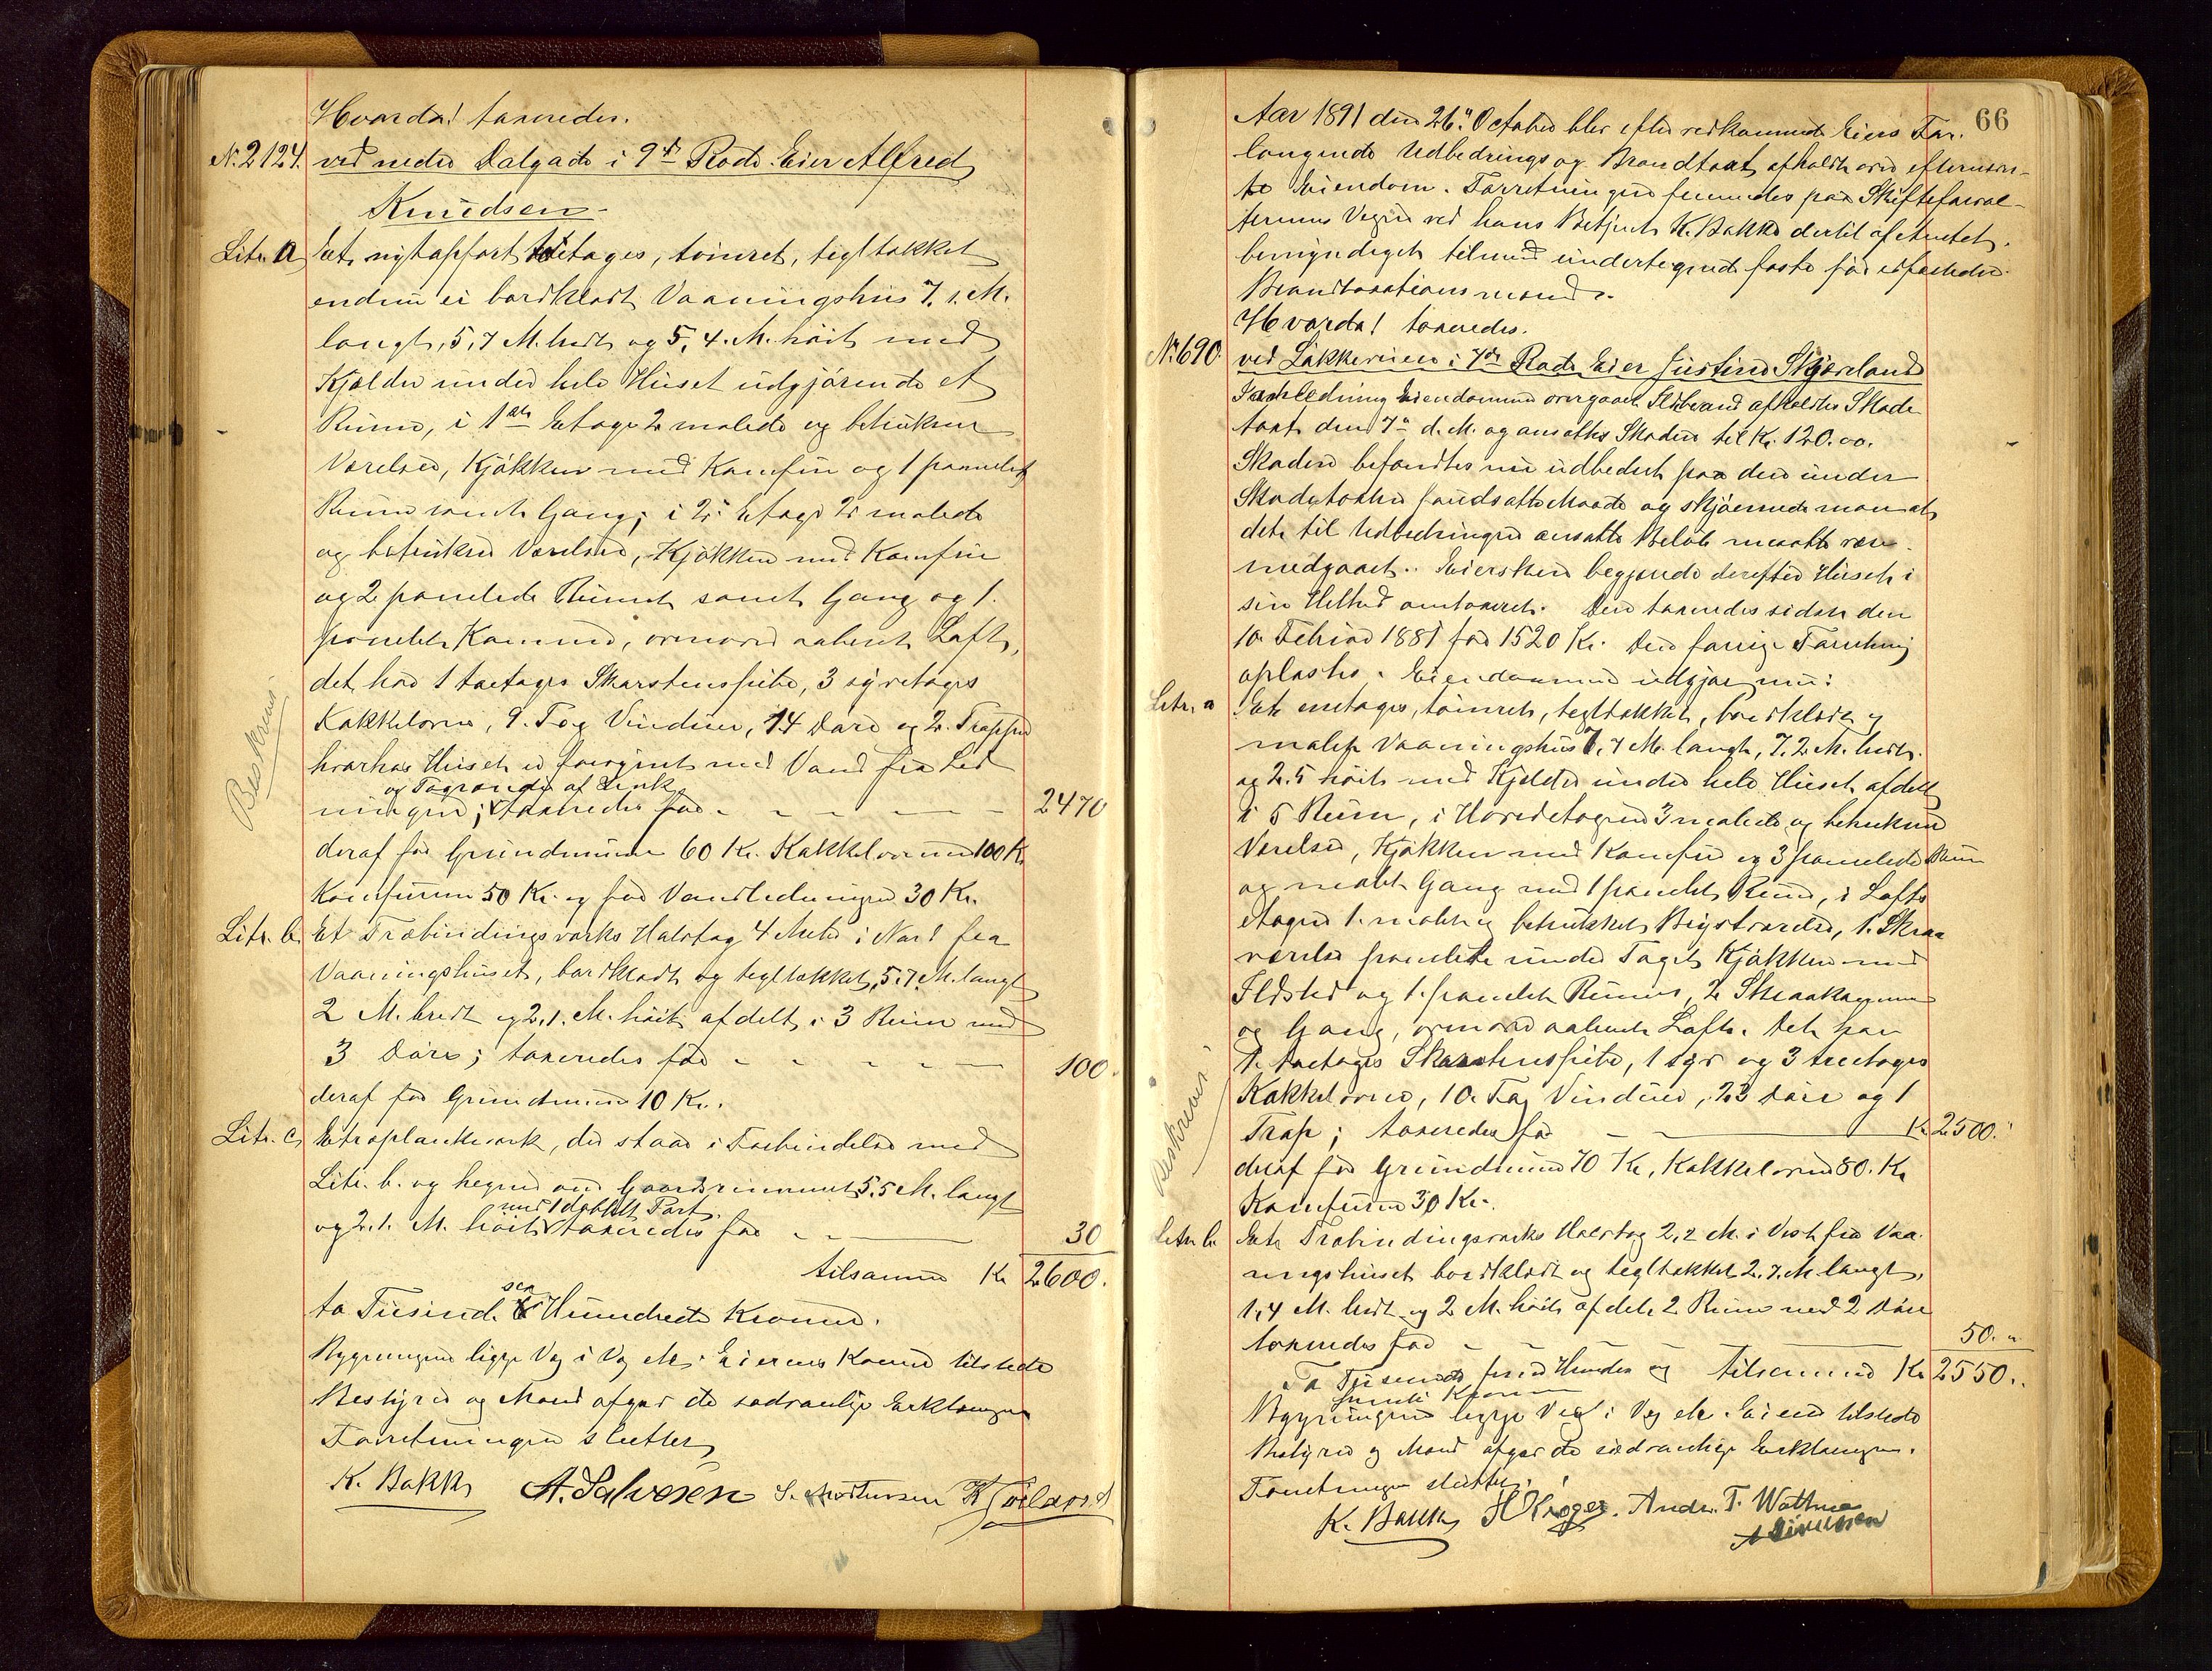 Hvorda! taxeredes.
No. 2124. ved nedre Dalgade i 9de Rode Eier Alfred
Knudsen
Litr. a Et nyt opført toetages, tømret, tegltækket
endnu ei bordklædt Vaaningshus 7.1. M.
langt, 5,7 M. bredt og 5,4. M. høit med
Kjælder under hele Huset udgjørende et
Rum, i 1ste Etage 2 malede og betrukne
Værelser, Kjøkken med Komfur og 1 panelet
Rum samt Gang; i 2. Etage 2 malede
og betrukne Værelser, Kjøkken med Komfur
og 2 panelede Rum samt Gang og 1.
panelet Kammer, ovenover aabent Loft,
det har 1 toetages Skorstenspibe, 3 syvetages
Kakkelovne, 9. Fag Vinduer, 14 Døre og 2. Trapper
hvorhos Huset er forsynet med Vand fra Led
og Tagrender af Zink
ningen; taxeredes for - - - - 2470
deraf for Grundmuren 60 Kr. Kakkelovnene 100 Kr
Komfurene 50 Kr. og for Vandledningen 30 Kr.
Litr. b. Et Træbindingsværks Halvtag 4 Meter i Nord fra
Vaaningshuset, bordklædt og tegltækket, 5.7. M. langt
2 M. bredt og 2,1. M. høit afdelt i 3 Rum med
3 Døre; taxeredes for - - - - 100.
deraf for Grundmuren 10 Kr.
Litr. c, Et Træplankeværk, der staar i Forbindelse med
Litr. b. og hegner om Gaardsrummet 5.5 M. langt
med 1 dobbelt Port
og 2.1. M. høit taxeredes for - - 30
tilsammen Kr 2600.
sex
to Tusind Hundrede Kroner.
Bygningen ligge Væg i Væg etc. Eierens Kone tilstede
Bestyrer og Mænd afgav de sædvanlige Erklæringer
Forretningen sluttet
K. Bakke A. Salvesen S. Mortensen
Beskreven
66
Aar 1891 den 26. October blev efter vedkommende Eiers For-
langende Udbedrings og Brandtaxt afholdt over efternævn-
te Eiendom. Forretningen fremmedes paa Skifteforval-
terens Vegne ved hans Betjent K. Bakke dertil af Amtet
bemyndiget tilmed undertegnede faste for edfæstede
Brandtaxationsmænd.
Hvorda! taxeredes.
No. 690. ved Løkkeveien i 7de Rode Eier Justine Skjæveland
I Anledning Eiendommen overgaaet Ildbrand afholdtes Skade
taxt den 7de d. M. og ansattes Skaden til Kr. 120.00.
Skaden befandtes nu udbedret paa den under
Skadetaxten forudsatte Maade og skjønnede man at
det til Udbedringen ansatte Beløb maatte være
medgaaet. Eiersken begjærede derefter Huset i
sin Helhed omtaxeret. Den taxeredes sidst den
10. Februar 1881 for 1520 Kr. Den forrige Forretning
oplæstes. Eiendommen udgjør nu:
Litr. a Et enetages, tømret, tegltækket, bordklædt og
malet Vaaningshus 7,7 M. langt, 7.2 M. bredt
og 2.5 høit med Kjælder under hele Huset afdelt
i 5 Rum, i Hovedetagen 3 malede og betrukne
Værelser, Kjøkken med Komfur og 3 panelede Rum
og malet Gang med 1 panelet Rum, i Lofts
etagen 1. malet og betrukket Kvistværelse, 1. Skraa
værelse panelet under Taget Kjøkken med
Ildsted og 1. panelet Rum, 2 Skraakammer
og Gang, ovenover aabent Loft. Det har
1. toetages Skorstenspibe, 1 syv og 3 treetages
Kakkelovne, 10. Fag Vinduer, 23 Døre og 1
Trap; taxeredes for - - Kr 2500.
deraf for Grundmuren 70 Kr, Kakkelovnene 80. Kr
Komfuren 30 Kr.
Litr. b. Et Træbindingsværks Halvtag 2,2 M. i Vest fra Vaa-
ningshuset bordklædt og tegltækket 2.7. M langt,
1,4 M. bredt og 2 M. høit afdelt 2 Rum med 2 Døre
taxeredes for - - - - 50.
To Tusinde fem Hundre og tilsammen Kr 2550.
femti Kroner
Bygningen ligge Væg i Væg etc. Eieren tilstede
Bestyrer og Mænd afgav de sædvanlige Erklæringer.
Forretningen sluttet.
K. Bakke H Krøger. Andr. T. Wattne
Beskreven